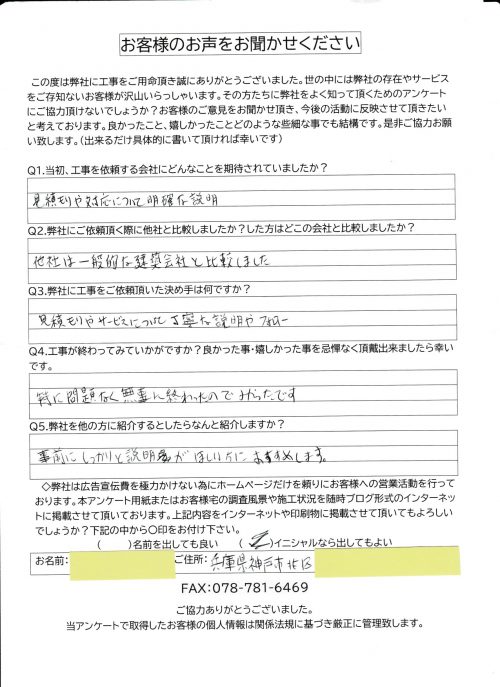 お客様のお声をお聞かせください
この度は弊社に工事をご用命頂き誠にありがとうございました。世の中には弊社の存在やサービス
をご存知ないお客様が沢山いらっしゃいます。その方たちに弊社をよく知って頂くためのアンケート
にご協力頂けないでしょうか？お客様のご意見をお聞かせ頂き、今後の活動に反映させて頂きたい
と考えております。良かったこと、嬉しかったことどのような些細な事でも結構です。是非ご協力お願
い致します。（出来るだけ具体的に書いて頂ければ幸いです）
Q1.当初、工事を依頼する会社にどんなことを期待されていましたか？
見積もりや対応について明確な説明
Q2.弊社にご依頼頂く際に他社と比較しましたか？した方はどこの会社と比較しましたか？
他社は一般的な建築会社と比較しました
Q3.弊社に工事をご依頼頂いた決め手は何ですか？
見積もりやサービスについて丁寧な説明やフォロー
Q4.工事が終わってみていかがですか？良かった事・嬉しかった事を忌憚なく頂戴出来ましたら幸い
です。
特に問題なく無事に終わったのでよかったです
Q5.弊社を他の方に紹介するとしたらなんと紹介しますか？
事前にしっかりと説明がほしい方におすすめします。
◇弊社は広告宣伝費を極力かけない為にホームページだけを頼りにお客様への営業活動を行って
おります。本アンケート用紙またはお客様宅の調査風景や施工状況を随時ブログ形式のインターネッ
トに掲載させて頂いております。上記内容をインターネットや印刷物に掲載させて頂いてもよろしい
でしょうか？下記の中から〇印をお付け下さい。
（　　）名前を出しても良い　（　　）イニシャルなら出してもよい
お名前：　ご住所：兵庫県神戸市北区
FAX：078-781-6469
ご協力ありがとうございました。
当アンケートで取得したお客様の個人情報は関係法規に基づき厳正に管理致します。